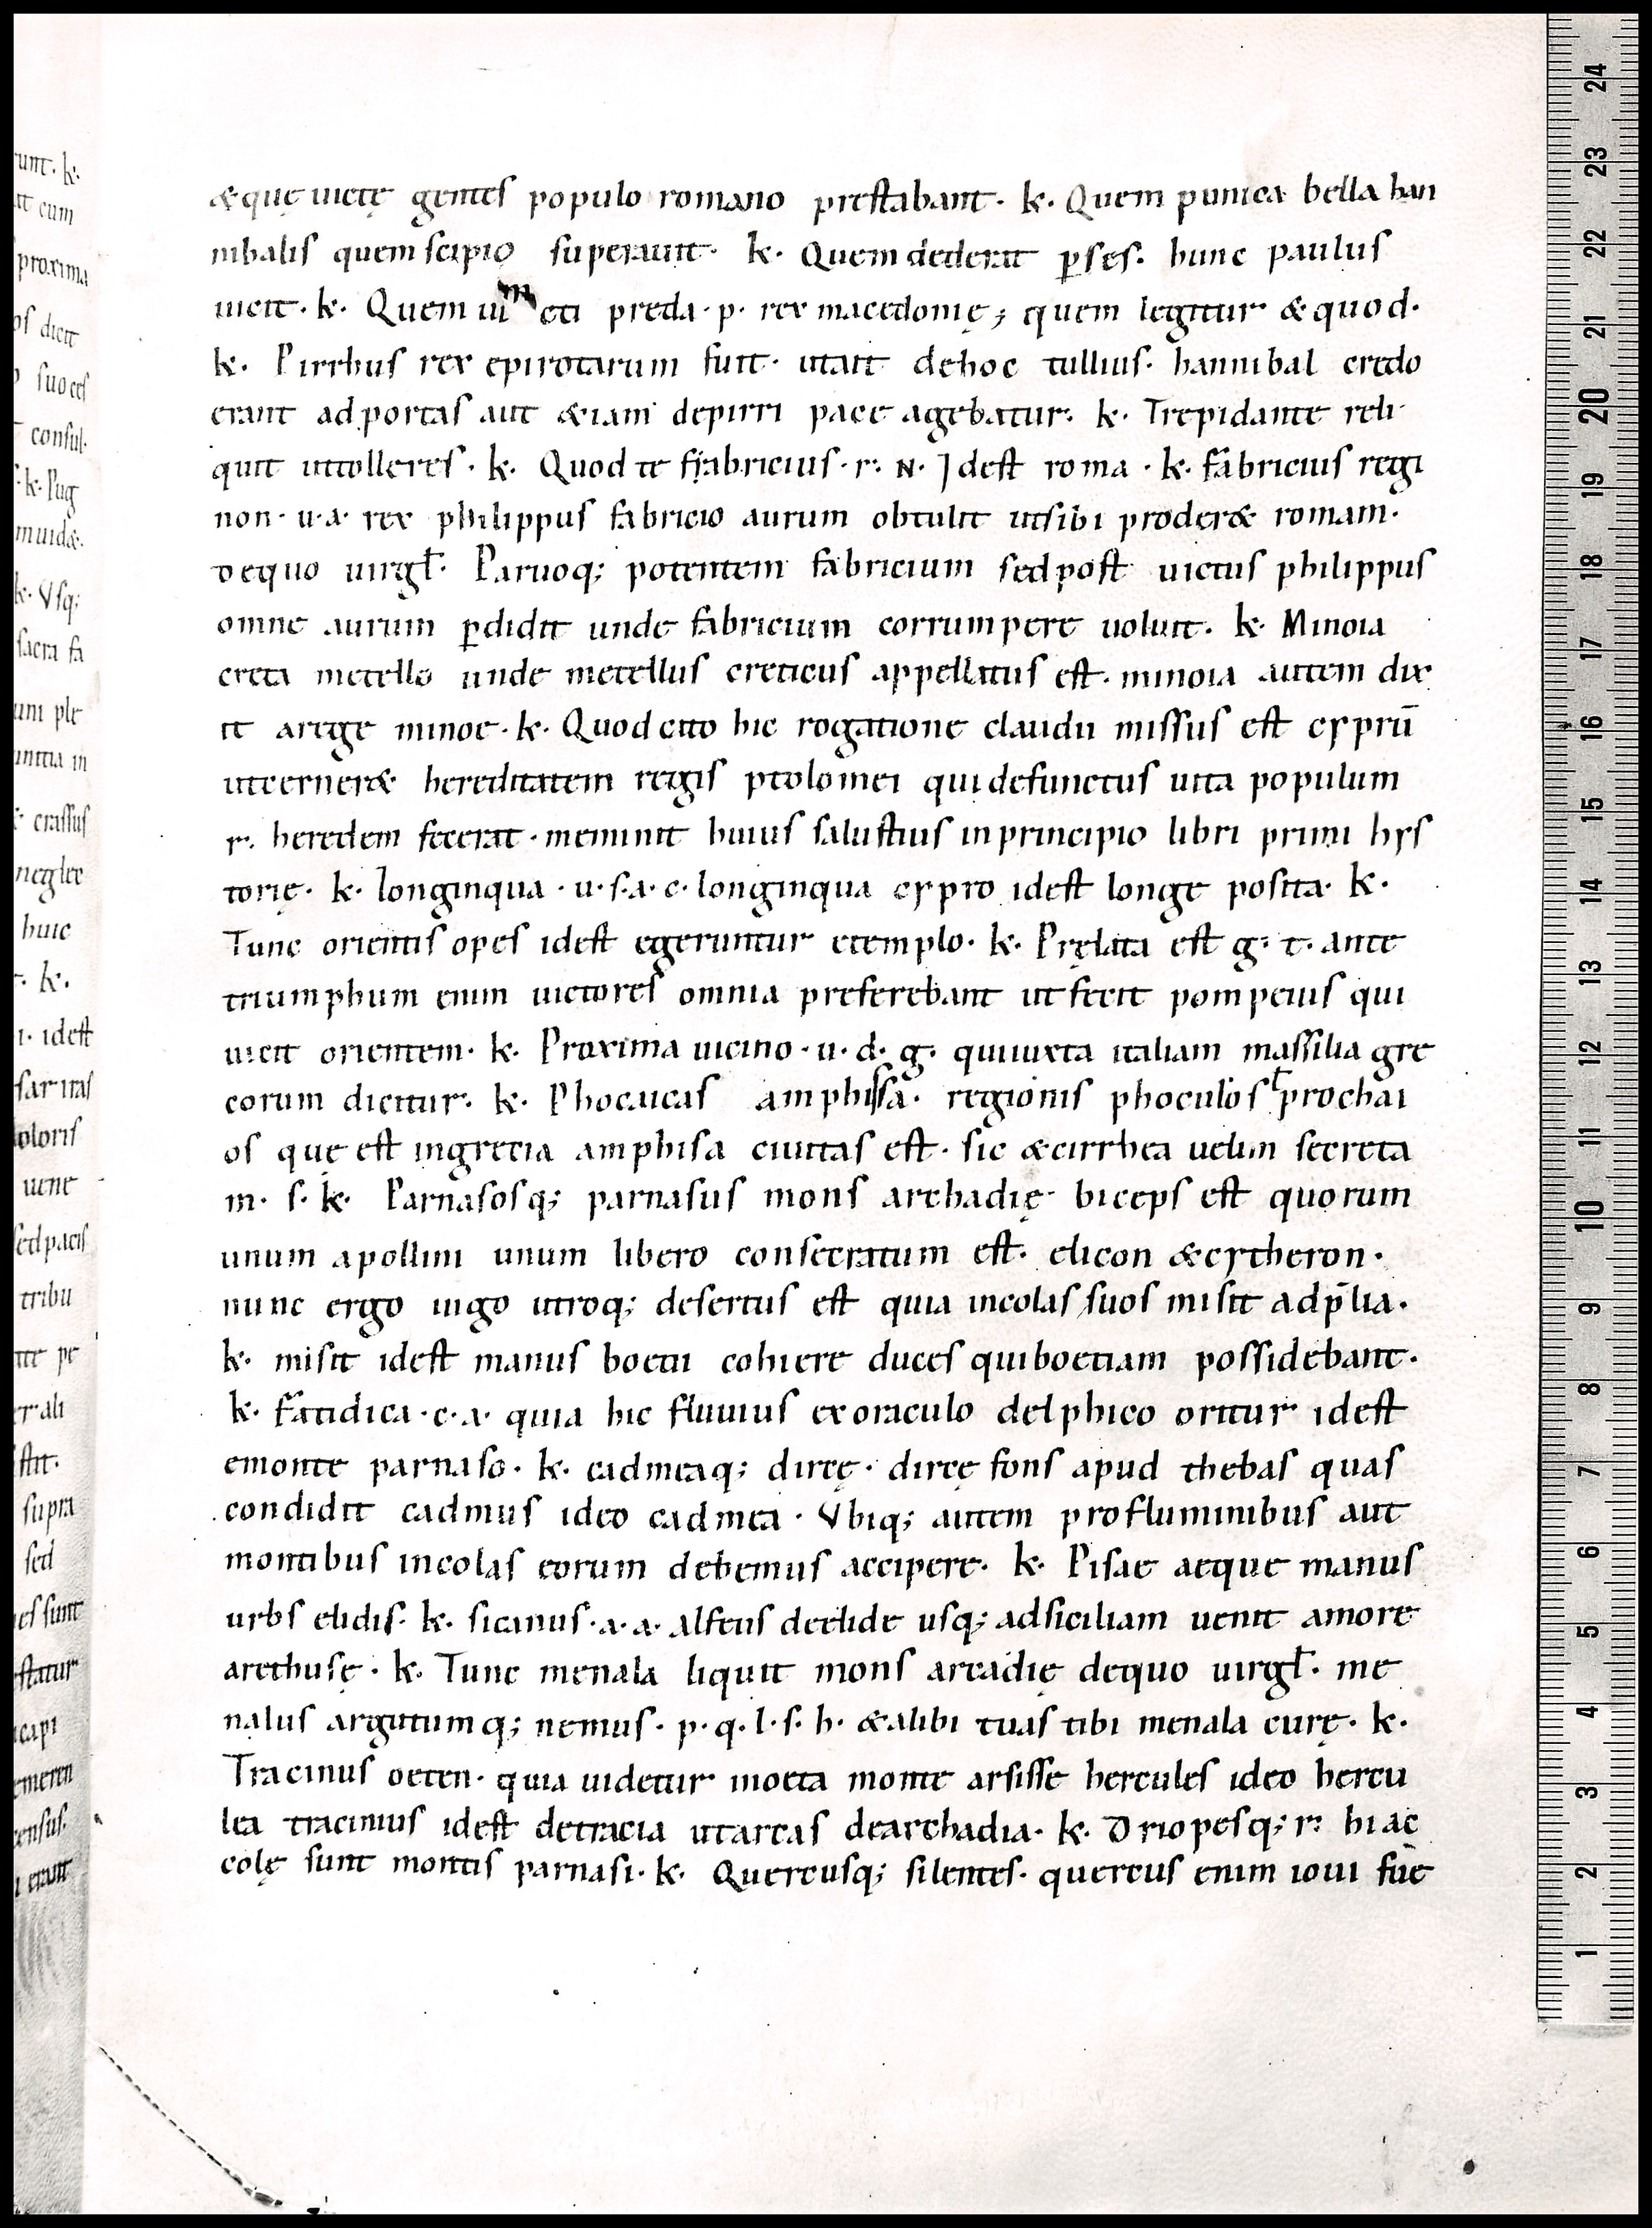 &que uictę gentes populo romano prestabant· k· Quem punica bella han
nibalis quem scipio superauit· k· Quem dederat ꝑses· hunc paulus
uicit· k· Quem ui m cti preda· p· rex macedonię; quem legitur & quod·
k· Pirrhus rex epirotarum fuit· utait dehoc tullius· hannibal credo
erant ad portas aut &iam depirri pace agebatur· k· Trepidante reli
quit uttolleres· k· Quod te fabricius· r· N· Idest roma· k· fabricius regi
non· u·a· rex philippus fabricio aurum obtulit utsibi proder& romam·
dequo uirgł· Paruoq; potentem fabricium sedpost uictus philippus
omne aurum ꝑdidit unde fabricium corrumpere uoluit· k· Minoia
creta metello unde metellus creticus appellatus est· minoia autem dix
it arege minoe· k· Quod cato hic rogatione claudii missus est cyprū
utcerner& hereditatem regis ptolomei qui defunctus uita populum
r· heredem fecerat· meminit huius salustius inprincipio libri primi hys
torię· k· longinqua· u·s·a·c· longinqua cypro idest longe posita· k·
Tunc orientis opes idest egeruntur etemplo· k· Pręlata est g· t· ante
triumphum enim uictores omnia preferebant ut fecit pompeius qui
uicit orientem· k· Proxima uicino· u·d·g· quiiuxta italiam massilia gre
corum dicitur· k· Phocaicas amphissa· regionis phoculos ł prochai
os quę est ingrecia amphisa ciuitas est· sic &cirrhea uelim secreta
m· s· k· Parnasosq; parnasus mons archadię· biceps est quorum
unum apollini unum libero consecratum est· elicon &cytheron·
nunc ergo iugo utroq; desertus est quia incolas suos misit adp̄lia·
k· misit idest manus boetii cohiere duces quiboetiam possidebant·
k· fatidica· c·a· quia hic fluuius exoraculo delphico oritur idest
emonte parnaso· k· cadmeaq; dircę· dircę fons apud thebas quas
condidit cadmus ideo cadmea· Vbiq; autem profluminibus aut
montibus incolas eorum debemus accipere· k· Pisae aeque manus
urbs elidis· k· sicanus· a·a· alfeus deelide usq; adsiciliam uenit amore
arethusę· k· Tunc menala liquit mons arcadię dequo uirgł· me
nalus argutumq; nemus· p·q·l·s·h· &alibi tuas tibi menala curę· k·
Tracinus oeten· quia uidetur inoeta monte arsisse hercules ideo hercu
lea tracinius idest detracia utarcas dearchadia· k· Driopesq; r· hi ac
colę sunt montis parnasi· k· Quercusq; silentes· quercus enim ioui fūe